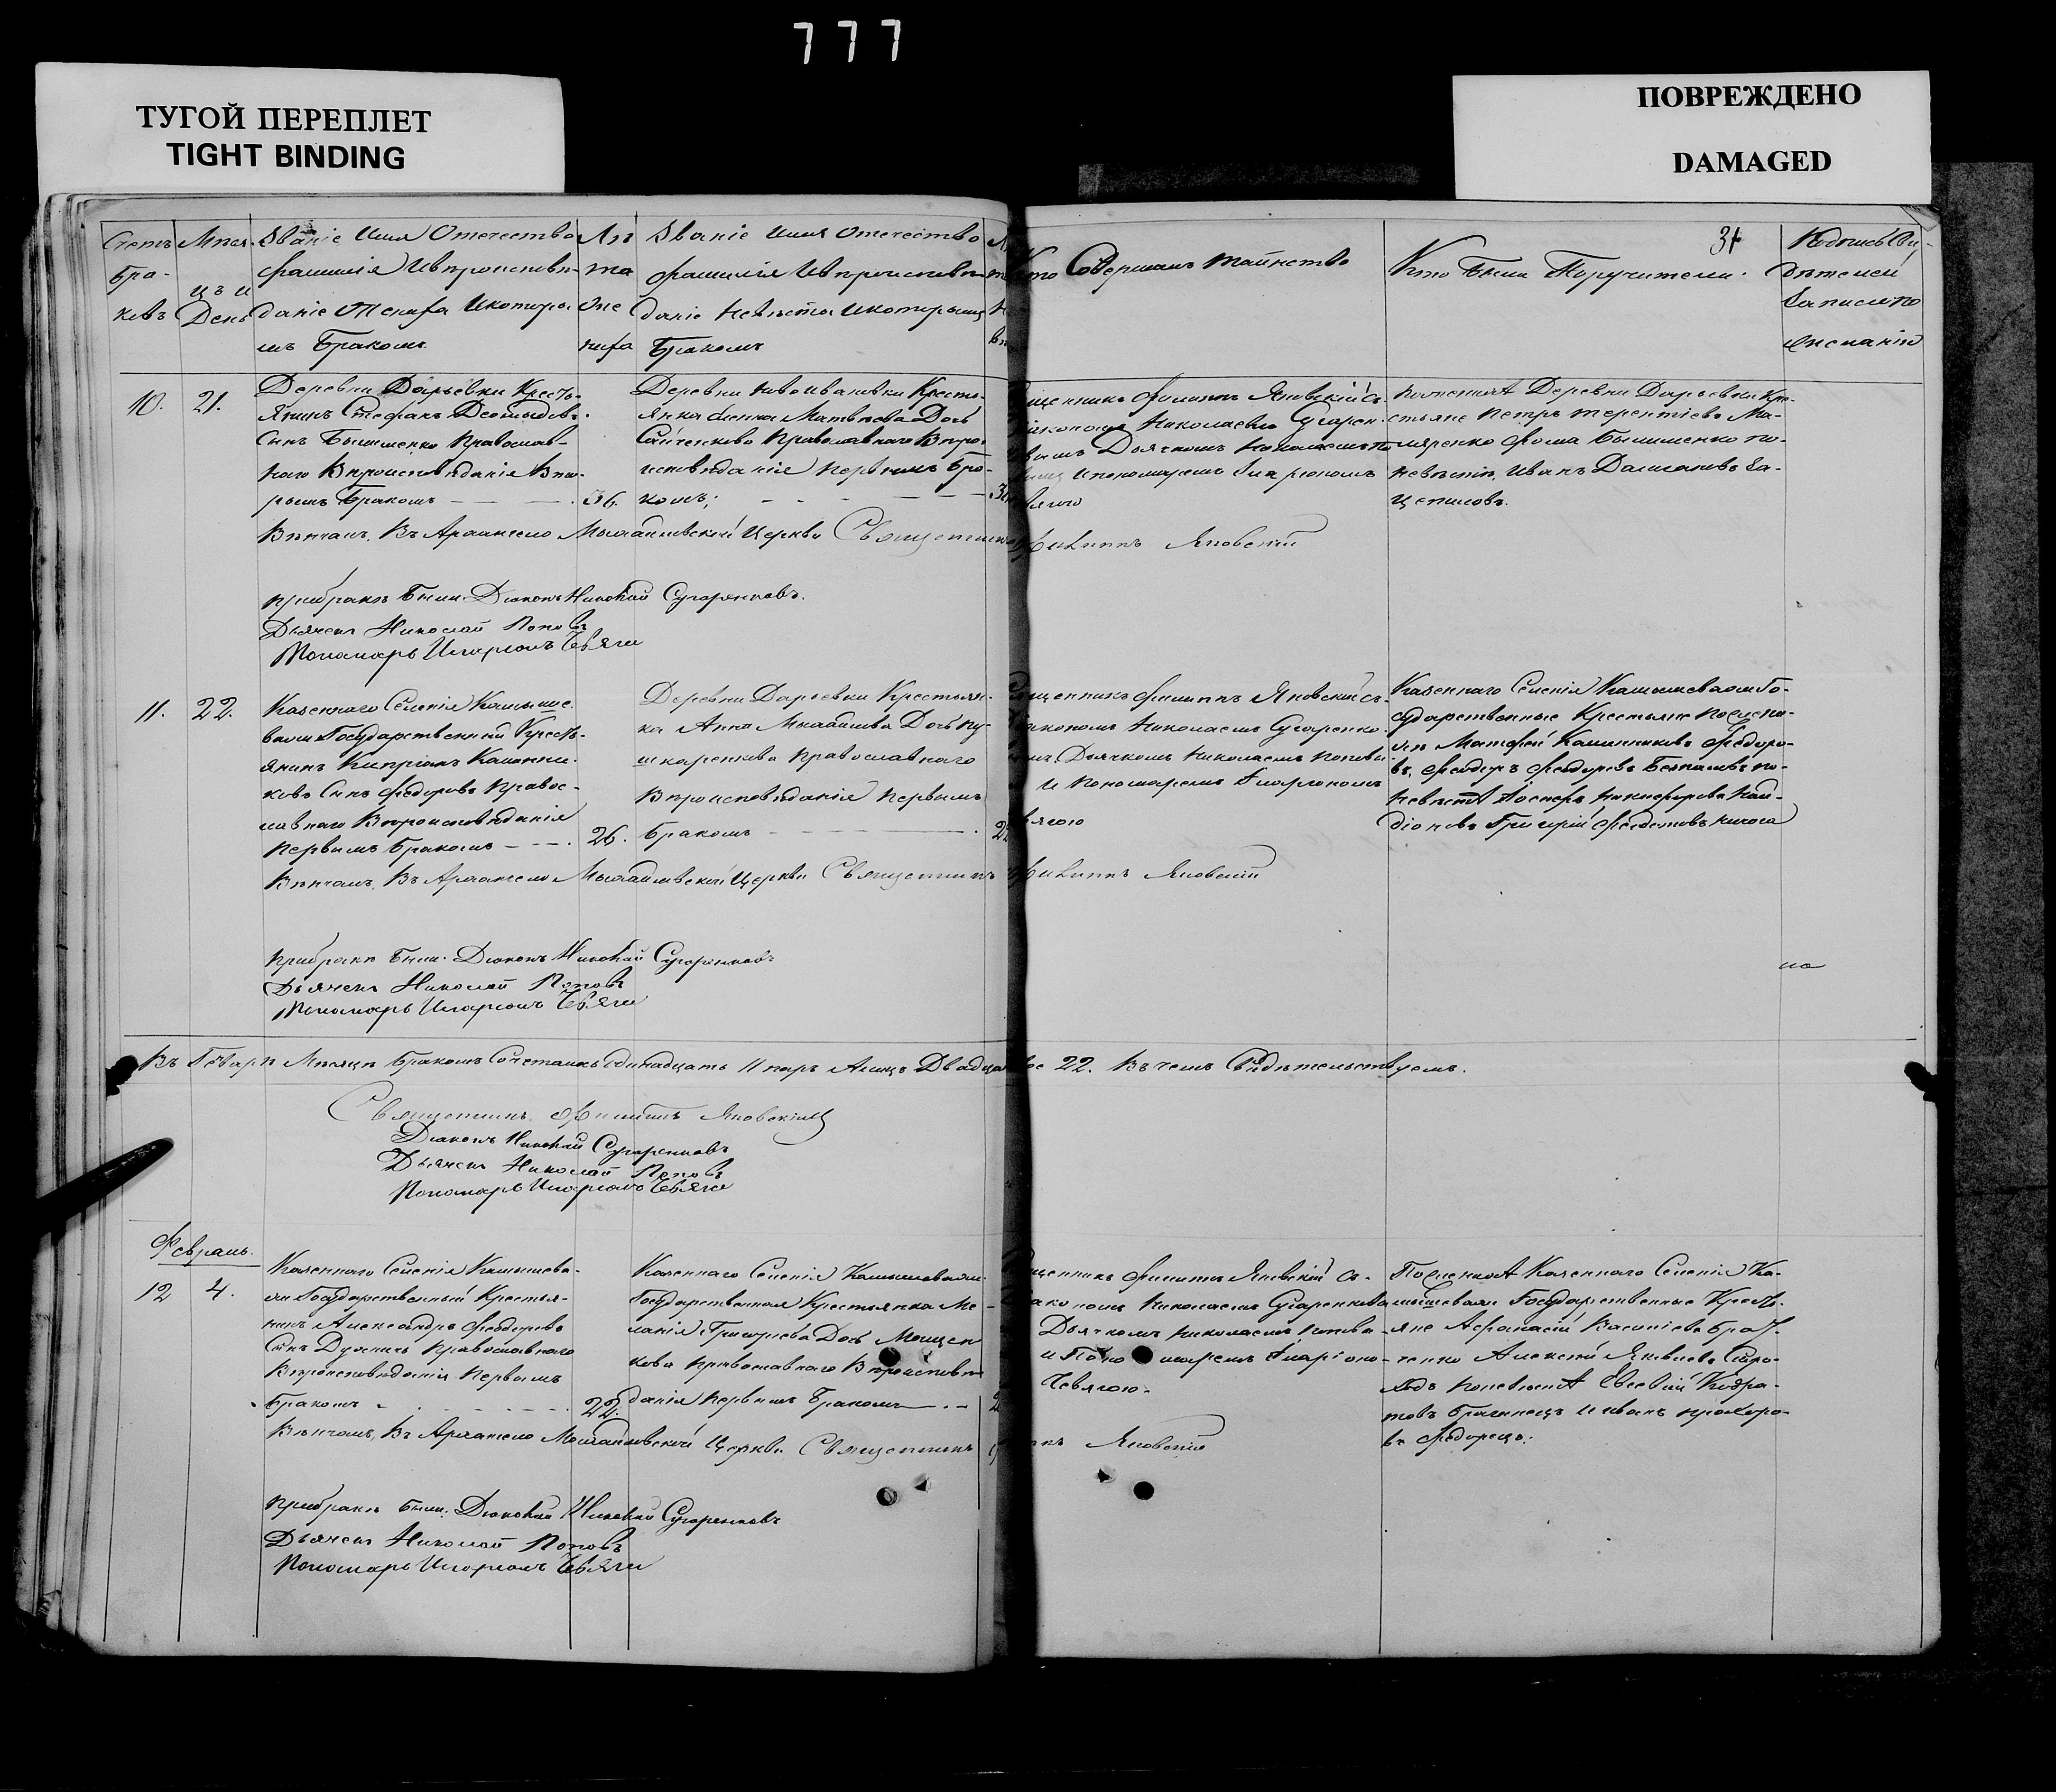 777
ТУГОЙ ПЕРЕПЛЕТ
TIGHT BINDING
ПОВРЕЖДЕНО
DAMAGED
31
Счетъ бра-ковъ
Мѣся-цъ и День
Званіе Имя Отечество
фамилія И вѣроисповѣ-
даніе Жениха И которы-
мъ Бракомъ
Лѣ-та Же-ниха
Званіе Имя Отечество
фамилія И вѣроисповѣ-
даніе Невѣсты И которымъ
Бракомъ
Кто Совершалъ Таинство
Кто Были Поручители.
Подпись Сви-
дѣтелей
Записи по
желанію
10. 21.
Деревни Дарьевки Кресть-
янинъ Стефанъ
Сынъ Православ-
наго Вѣроисповѣданія Вто-
рымъ Бракомъ 36.
Деревни Новоивановки Кресть-
янка Матвѣева Дочь
Православнаго Вѣро-
исповѣданія первымъ Бра-
комъ;
Филиппъ Яновскій съ
Николаемъ
Дьячкомъ Николаемъ
и пономаремъ Иларіономъ
По женихѣ Деревни Дарьевки Кре-
стьяне Петръ Терентіевъ Ма-
ляренко Фома по
невѣстѣ Иванъ
Вѣнчанъ. Въ Архангело Михайловской Церкви Священникъ Филиппъ Яновскій
При бракѣ Были: Діаконъ Николай Сугаренковъ.
Дьячекъ Николай Поповъ
Пономарь Иларіонъ Чевяга
11. 22.
Казеннаго Селенія Камыше-
вахи Государственный Кресть-
янинъ Кипріанъ
Сынъ Федоровъ Правос-
лавнаго Вѣроисповѣданія
Первымъ Бракомъ 26.
Деревни Дарьевки Крестьян-
ка Анна Михайлова Дочь Пу-
шкаренкова Православнаго
Вѣроисповѣданія Первымъ
Бракомъ
Филиппъ Яновскій съ
Николаемъ Сугаренко-
Дьячкомъ Николаемъ Поповы-
и Пономаремъ Иларіономъ
Казеннаго Селенія Камышевахи Го-
сударственные Крестьяне По жени-
хѣ Матфей Федоро-
въ, Феодоръ Феодоровъ по
невѣстѣ Никифоровъ
Григорій
Вѣнчанъ. Въ Архангело Михайловской Церкви Священникъ Филиппъ Яновскій
При бракѣ Были: Діаконъ Николай Сугаренковъ
Дьячекъ Николай Поповъ
Пономарь Иларіонъ Чевяга
Въ Генварѣ Мѣсяцѣ Бракомъ Сочеталось одинадцать 11 паръ А лицъ Двадцать 22. Въ чемъ Свидѣтельствуемъ.
Священникъ Филиппъ Яновскій
Діаконъ Николай Сугаренковъ
Дьячекъ Николай Поповъ
Пономарь Иларіонъ Чевяга
Февраль.
12 4.
Казеннаго Селенія Камышева-
хи Государственный Крестья-
нинъ Александръ Феодоровъ
Сынъ Православнаго
Вѣроисповѣданія Первымъ
Бракомъ 22.
Казеннаго Селенія Камышевахи
Государственная Крестьянка Ме-
ланія Григорьева Дочь Мощен-
кова Православнаго Вѣроисповѣ-
данія Первымъ Бракомъ
Филиппъ Яновскій съ
Николаемъ Сугаренковы
Дьячкомъ Николаемъ Поповы-
и Пономаремъ Иларіоно-
Чевягою.
По женихѣ Казеннаго Селенія Ка-
мышевахи Государственные Кресть-
яне Афанасій Василіевъ
Алексѣй Яковлевъ
По невѣстѣ Евсевій Кодра-
товъ и Иванъ Прохоро-
въ Федорецъ.
Вѣнчанъ. Въ Архангело Михайловской Церкви Священникъ Яновскій
При бракѣ Были: Николай Сугаренковъ
Дьячекъ Николай Поповъ
Пономарь Иларіонъ Чевяга